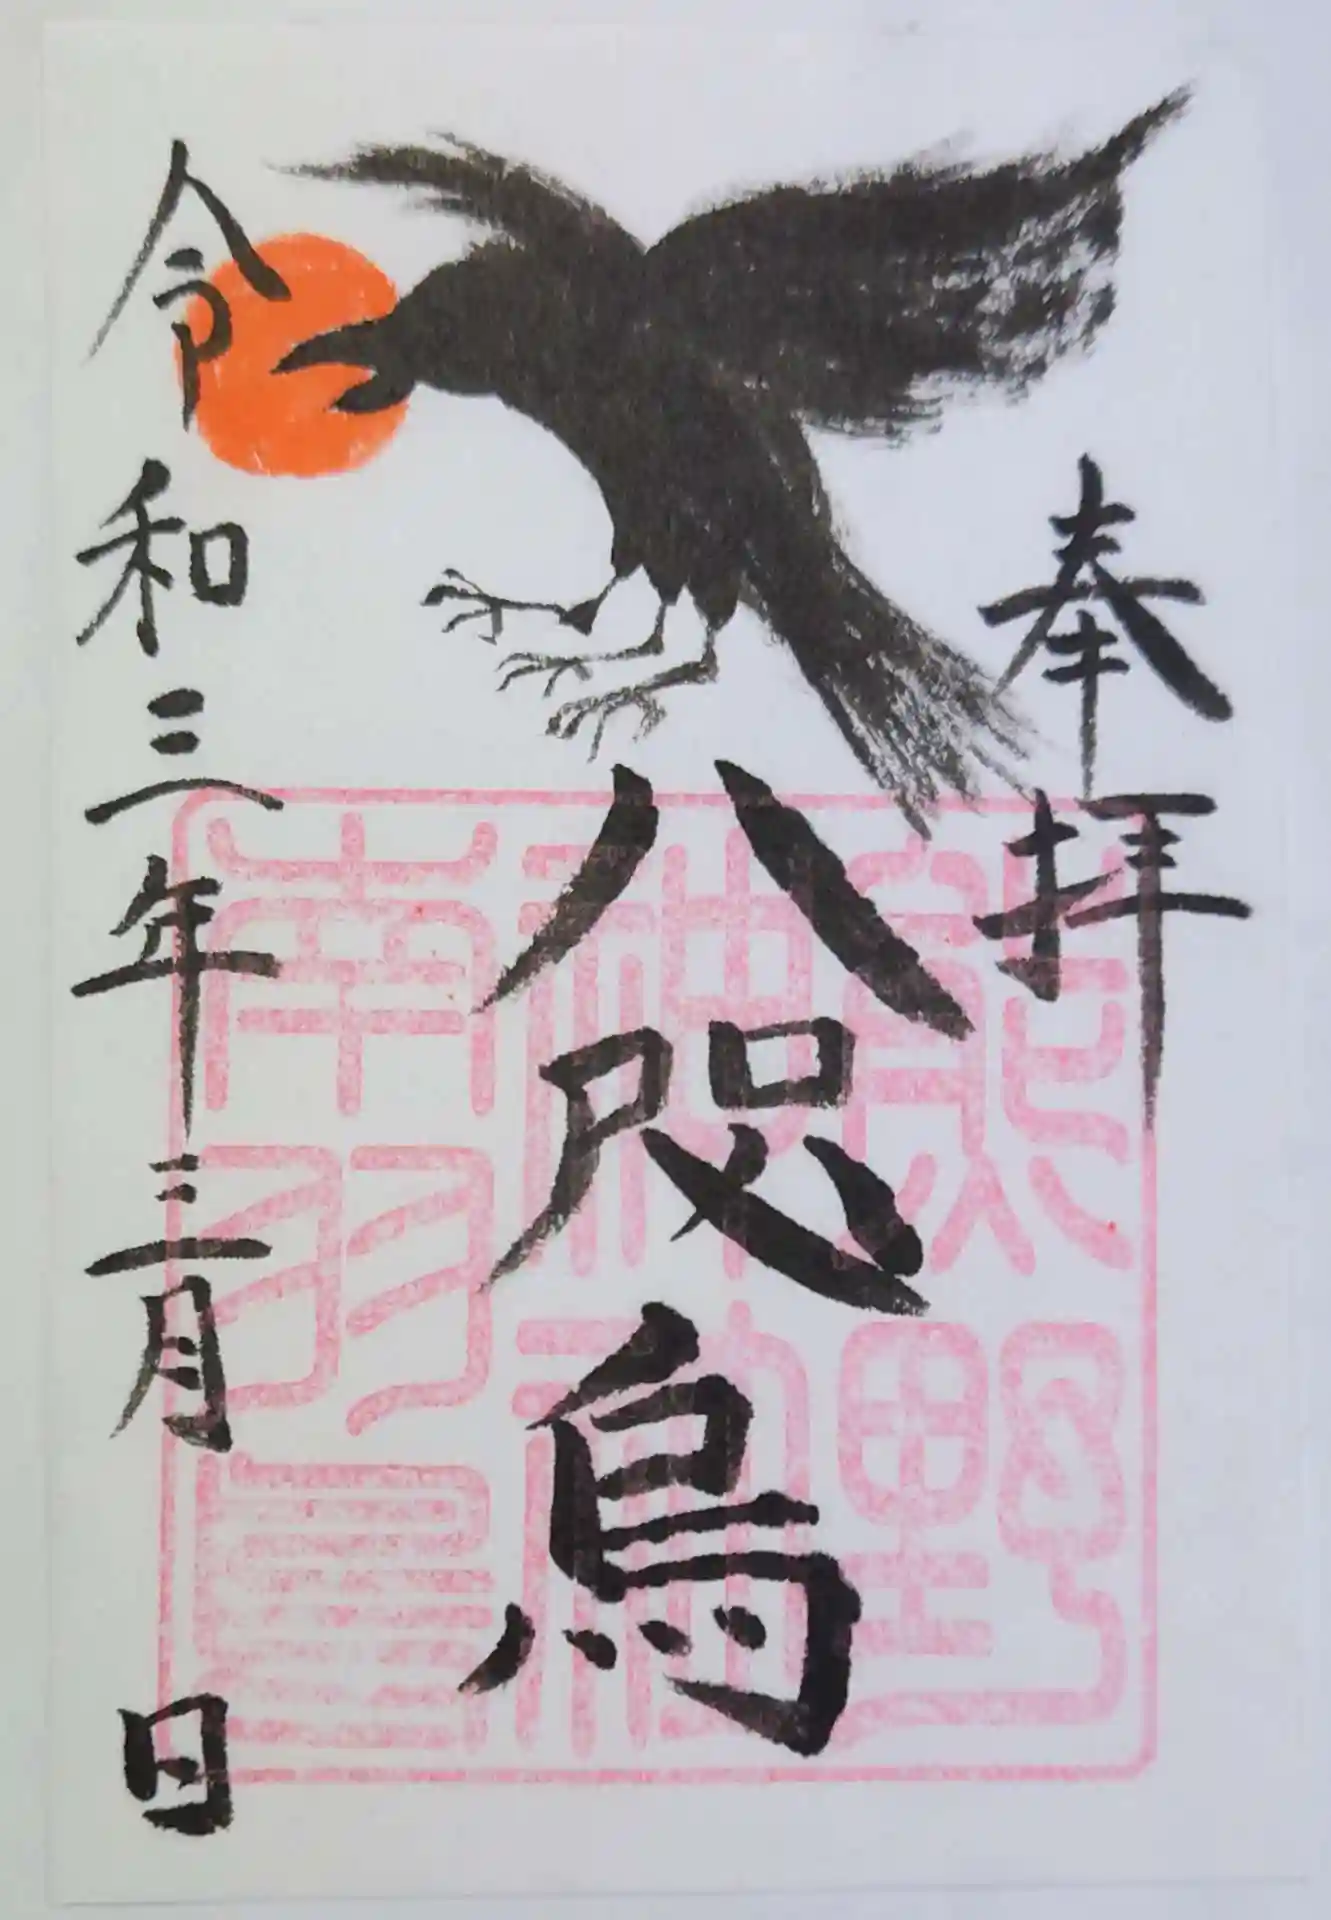 奉拝
八咫烏
令和三年三月 日
熊野
神社
南羽鳥